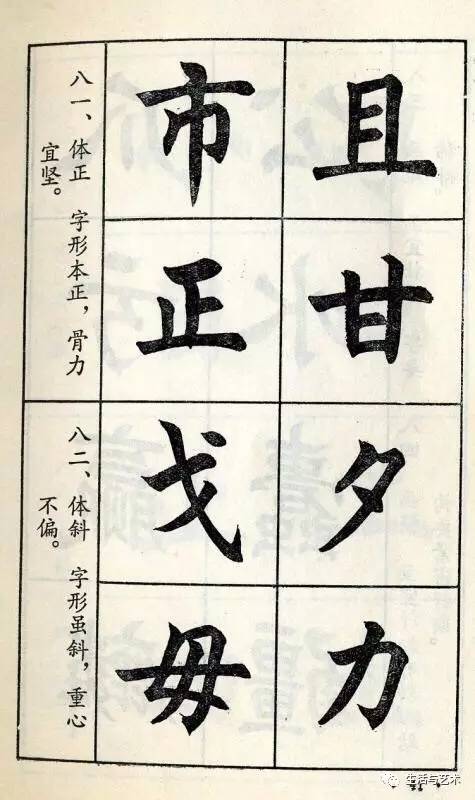 且
甘
市
正
八一、体正 字形本正，骨力
宜坚。
夕
力
戈
毋
八二、体斜 字形虽斜，重心
不偏。
生活与艺术